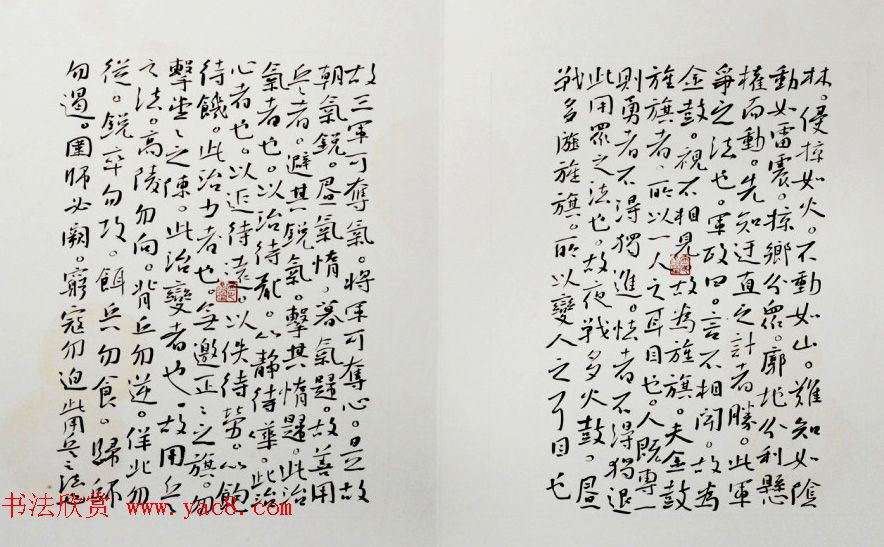 林。侵掠如火。不動如山。難知如陰
動如雷震。掠鄉分眾。廓地分利懸
權而動。先知迂直之計者勝。此軍
爭之法也。軍政曰。言不相聞。故為
金鼓。視不相見故為旌旗。夫金鼓
旌旗者。所以一人之耳目也。人既專一
則勇者不得獨進。怯者不得獨退
此用眾之法也。故夜戰多火鼓。晝
戰多旌旗。所以變人之耳目也
故三軍可奪氣。將軍可奪心。是故
朝氣銳。晝氣惰。暮氣歸。故善用
兵者。避其銳氣。擊其惰歸。此治
氣者也。以治待亂。以靜待譁。此治
心者也。以近待遠。以佚待勞。以飽
待饑。此治力者也。無邀正々之旗。勿
擊堂々之陳。此治變者也。故用兵
之法。高陵勿向。背丘勿逆。佯北勿
從。銳卒勿攻。餌兵勿食。歸師
勿遏。圍師必闕。窮寇勿迫此用兵之法也
书法欣赏 www.yac8.com